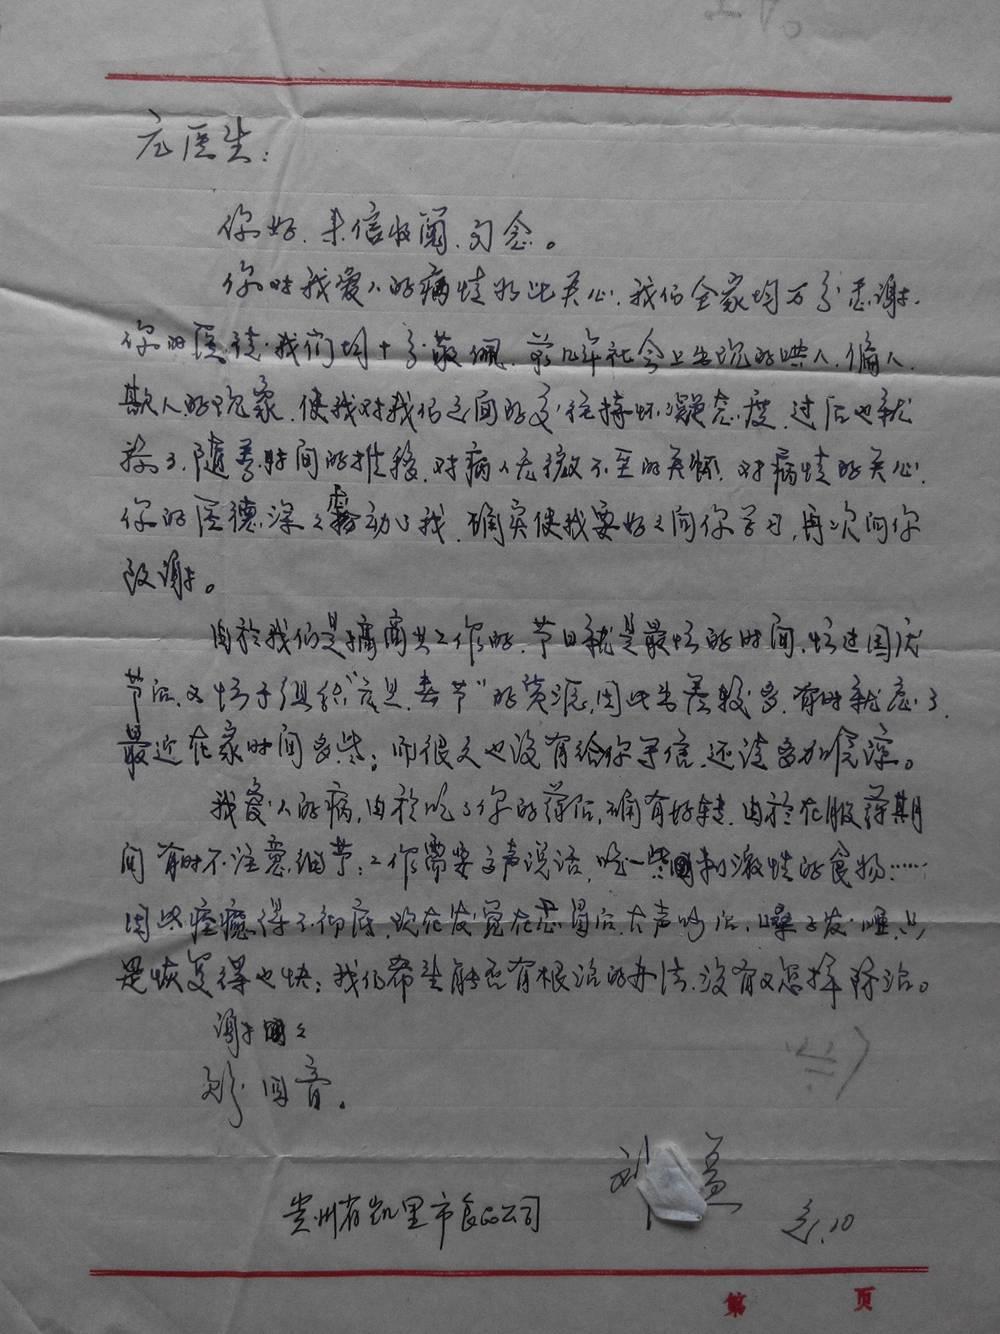 医生:
你好.来信收阅.勿念。
你对我爱人的病情如此关心.我们全家均万分感谢.
你的医德.我们均十分敬佩.前几年社会上出现的哄人.骗人.
欺人的现象.使我对我们之间的交往持怀疑态度.过后也就
算了.随着时间的推移.对病人无微不至的关怀.对病情的关心.
你的医德.深之感动了我.确实使我要好之向你学习,再次向你
致谢。
由於我们是搞商业工作的.节日就是最忙的时间.忙过国庆
节后.又忙于组织"元旦.春节"的货源,因此出差较多.有时就忘了.
最近在家时间多些;而很久也没有给你写信.还请多加原谅。
我爱人的病,由於吃了你的药后,确有好转.由於在服药期
间有时不注意细节;工作需要高声说话,吃一些刺激性的食物……
因此痊癒得不彻底.现在发觉在感冒后.大声吵后.嗓子发哑.只
是恢复得也快;我们希望能否有根治的办法.没有又怎样除治。
谢之
盼回音。
刘
贵州省凯里市食品公司
10
第 页